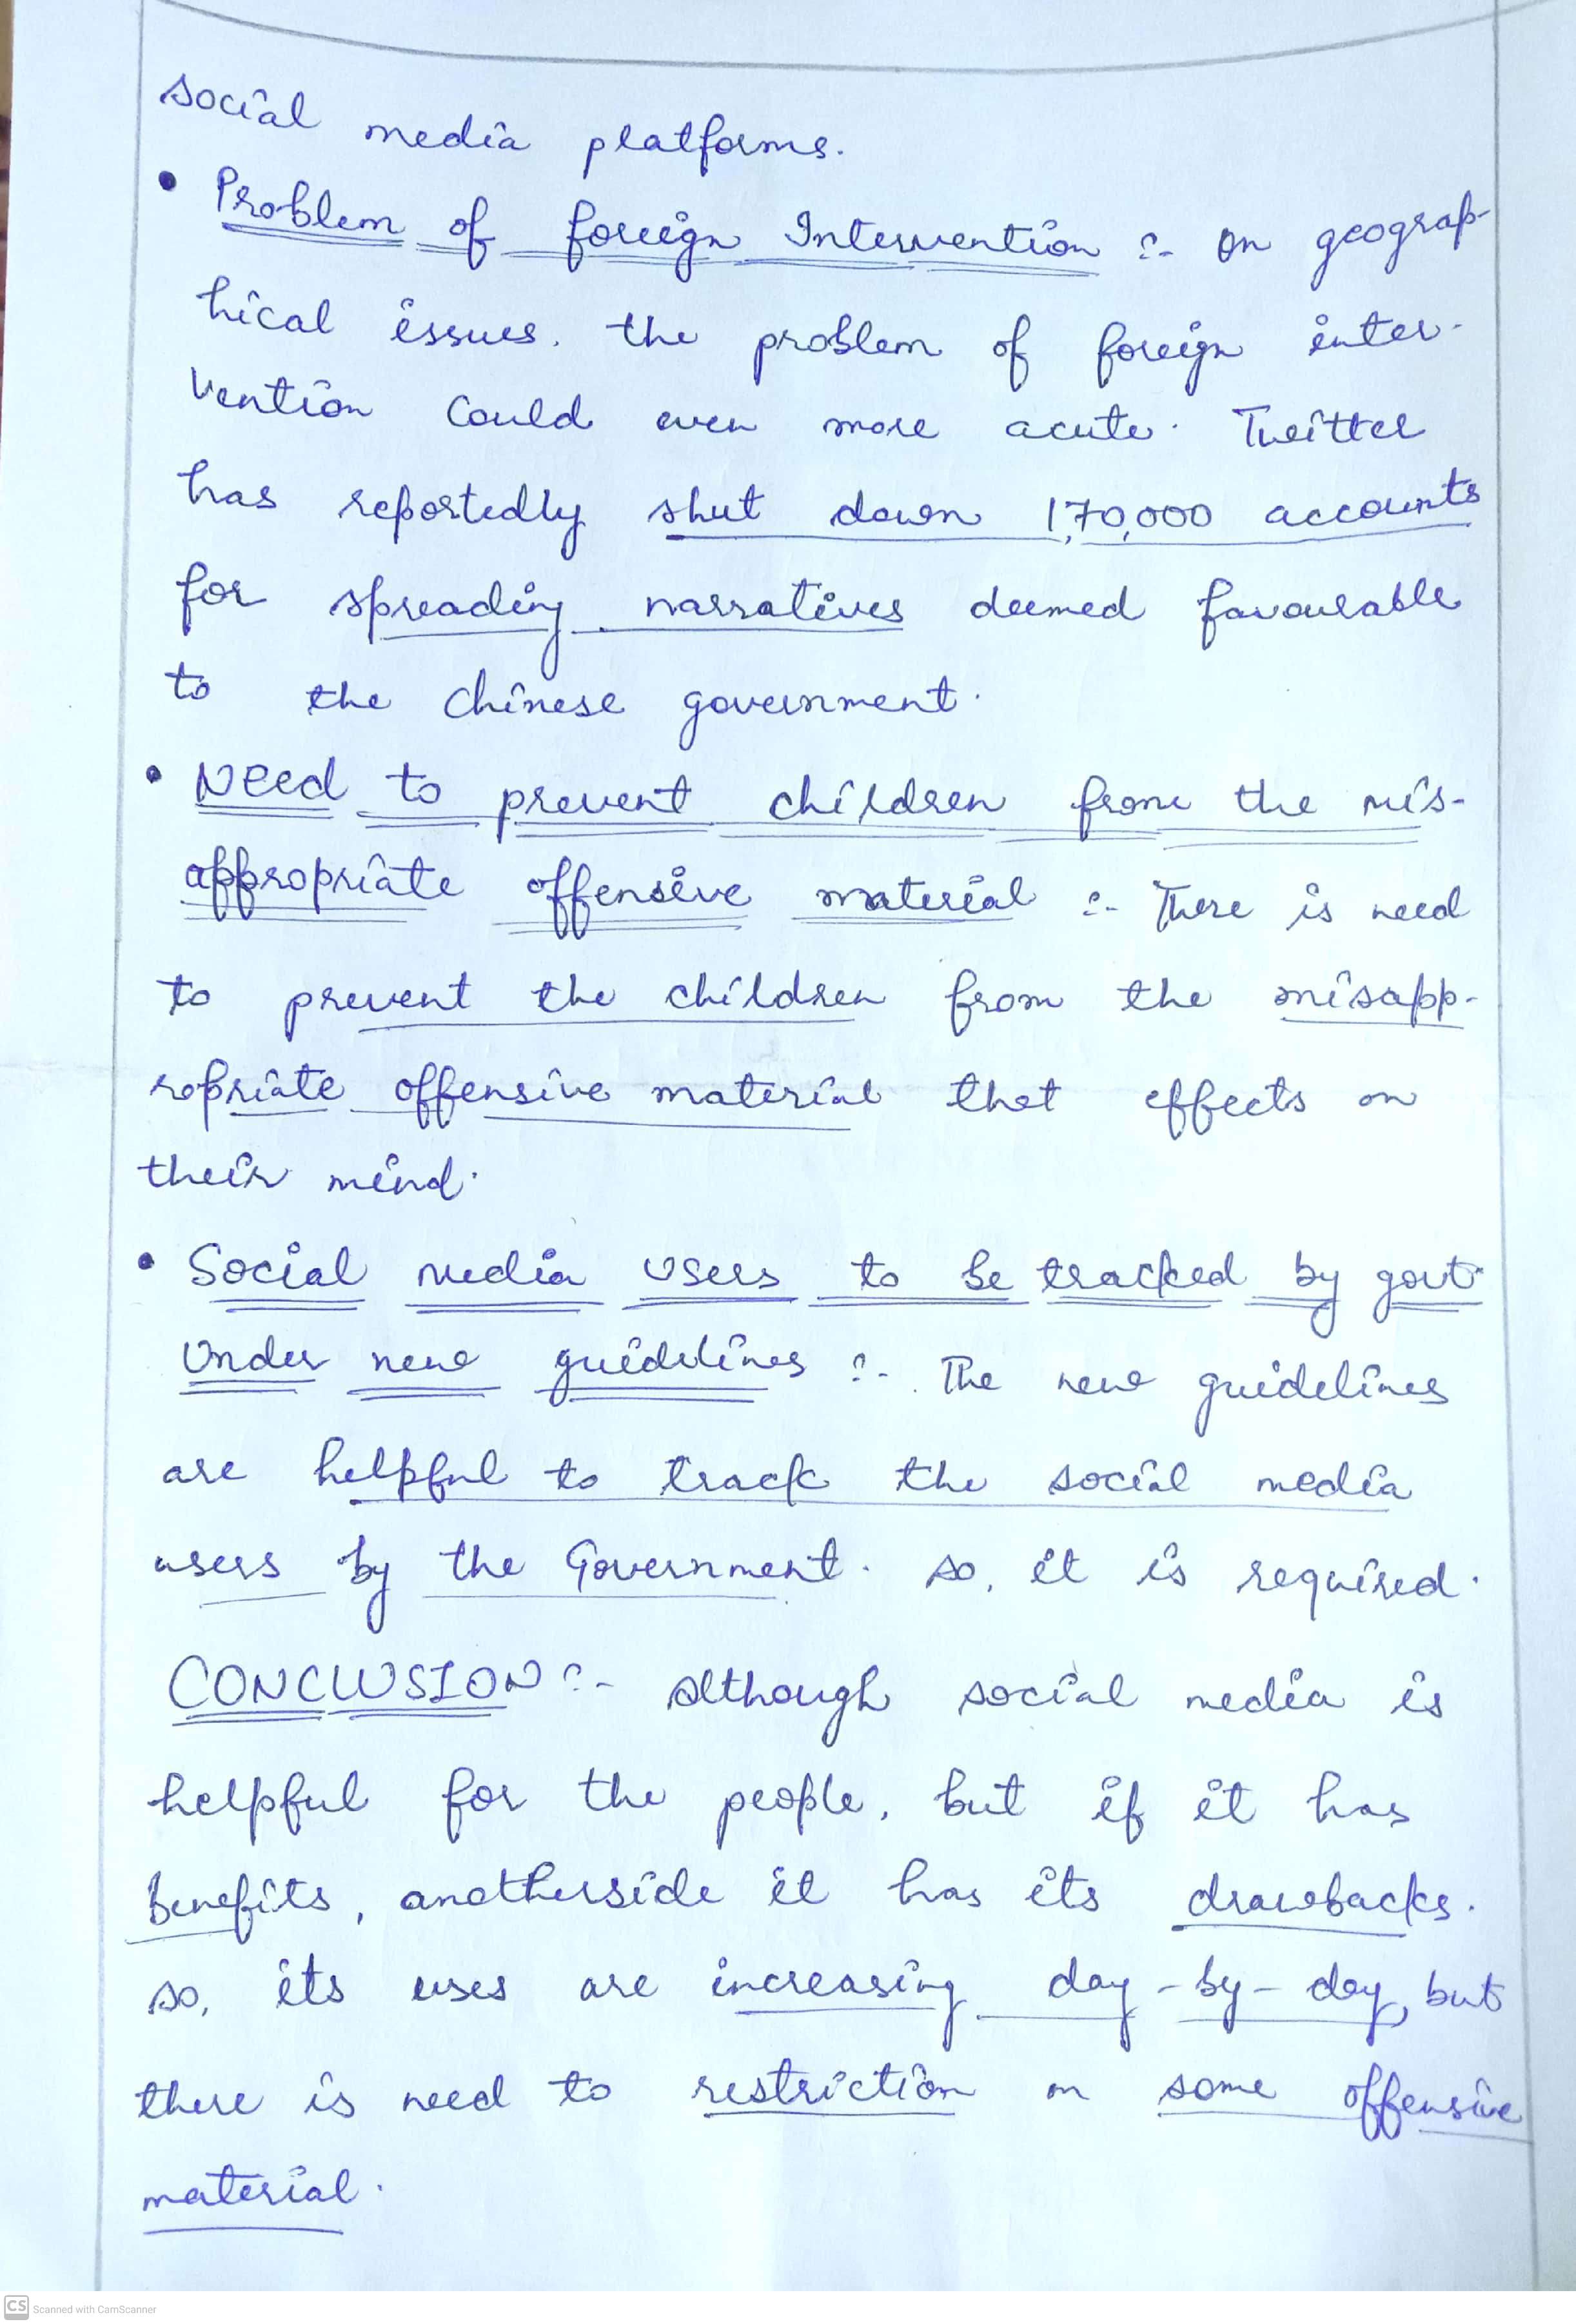 social media platforms.
• Problem of foreign Intervention :- On geograp-
hical issues. the problem of foreign inter-
vention could even more acute. Twitter
has reportedly shut down 1,70,000 accounts
for spreading narratives deemed favourable
to the Chinese government.
• Need to prevent children from the mis-
appropriate offensive material :- There is need
to prevent the children from the misapp-
ropriate offensive material that effects on
their mind.
• Social media users to be tracked by govt.
Under new guidelines :- The new guidelines
are helpful to track the social media
users by the Government. so, it is required.
CONCLUSION :- Although social media is
helpful for the people, but if it has
benefits, anotherside it has its drawbacks.
so, its uses are increasing day-by-day, but
there is need to restriction on some offensive
material.
CS Scanned with CamScanner